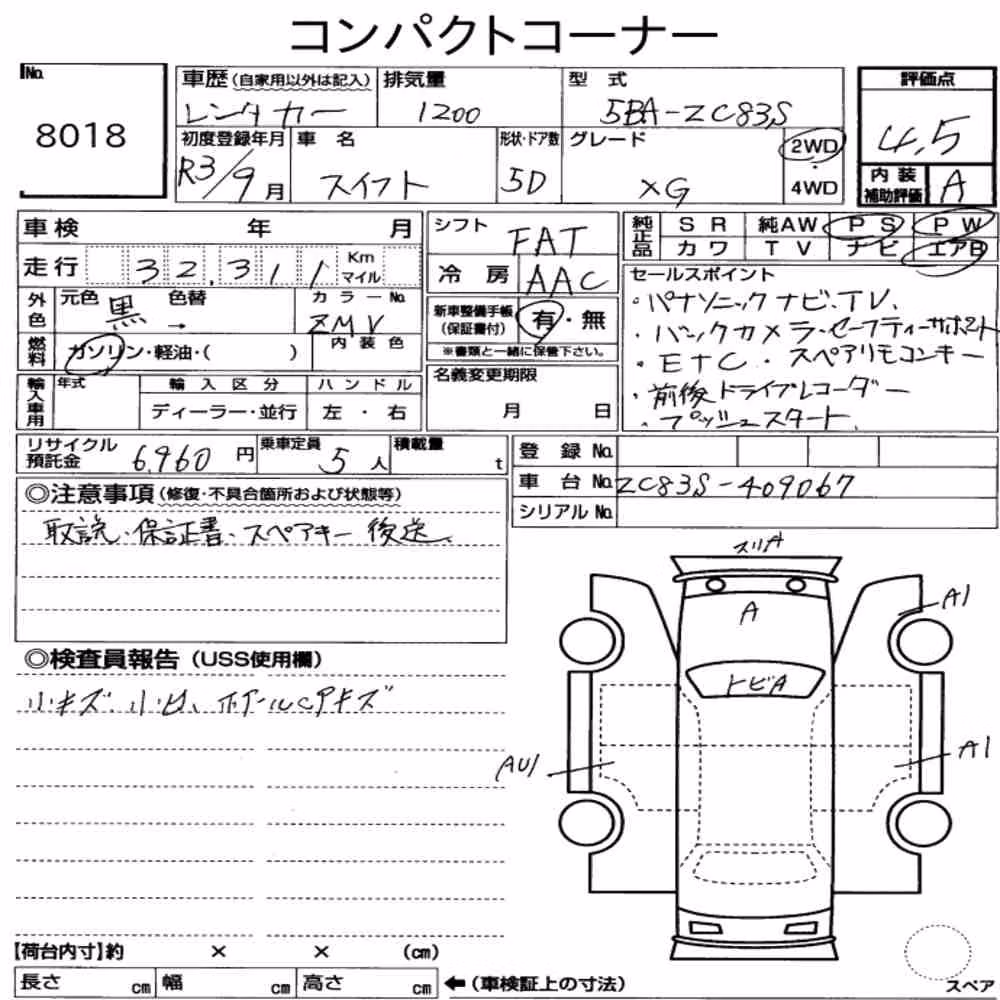 コンパクトコーナー
No. 8018
車歴(自家用以外は記入) 排気量 型式 評価点
レンタカー 1200 5BA-ZC83S 4.5
初度登録年月 車名 形状・ドア数 グレード 2WD・4WD
R3/9月 スイフト 5D XG
内装補助評価 A
車検 年 月
走行 32,311 Km マイル
シフト FAT
冷房 AAC
純正品 SR 純AW PS PW
カワ TV ナビ エアB
外色 元色 黒 色替 → カラーNo. ZMV
燃料 ガソリン・軽油・( ) 内装色
新車整備手帳(保証書付) 有・無
※書類と一緒に保管下さい。
セールスポイント
・パナソニックナビ.TV.
・バックカメラ・セーフティーサポート
・ETC・スペアリモコンキー
・前後ドライブレコーダー
・プッシュスタート
輸入車用 年式 輸入区分 ハンドル
ディーラー・並行 左・右
名義変更期限
月 日
リサイクル預託金 6,960円 乗車定員 5人 積載量 t
登録No.
車台No. ZC83S-409067
シリアルNo.
◎注意事項(修復・不具合箇所および状態等)
取説・保証書・スペアキー後送
◎検査員報告(USS使用欄)
小キズ、小凹、ホイールCPキズ
スリA
A
トビA
A1
A1
AU1
【荷台内寸】約 × × (cm)
長さ cm 幅 cm 高さ cm ←(車検証上の寸法)
スペア